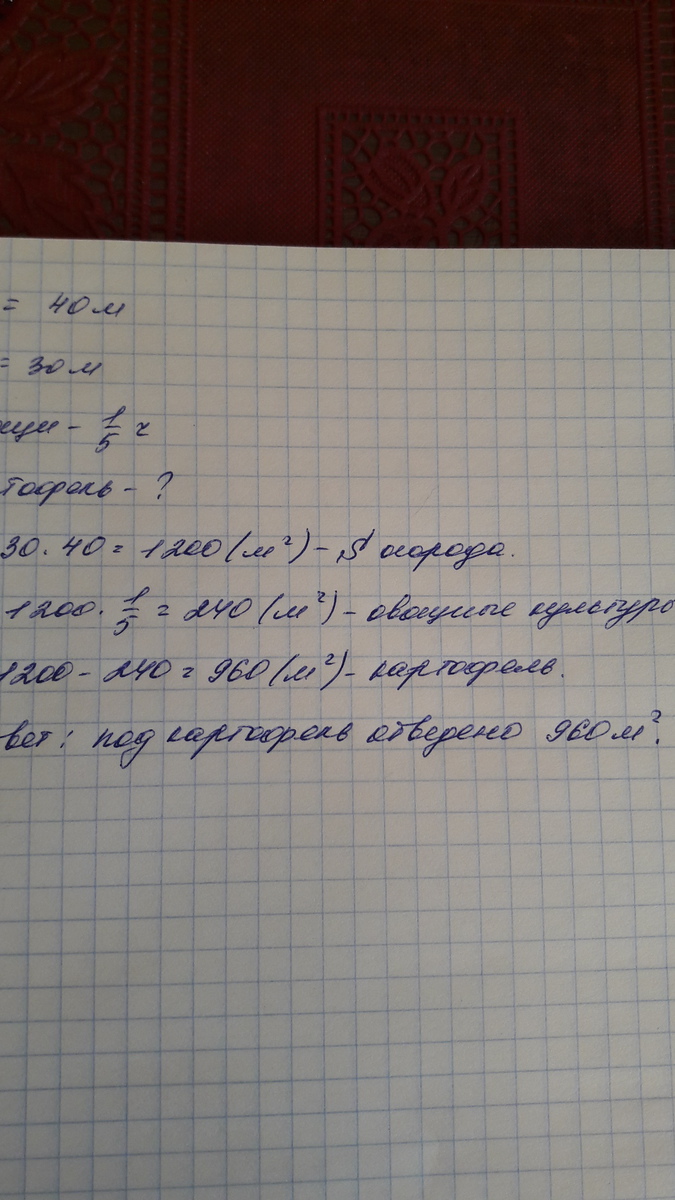 = 40 м
= 30 м
ощи - 1/5 ч
тофель - ?
30 · 40 = 1200 (м²) - S огорода.
1200 · 1/5 = 240 (м²) - овощные культуры
1200 - 240 = 960 (м²) - картофель.
вет: под картофель отведено 960 м².